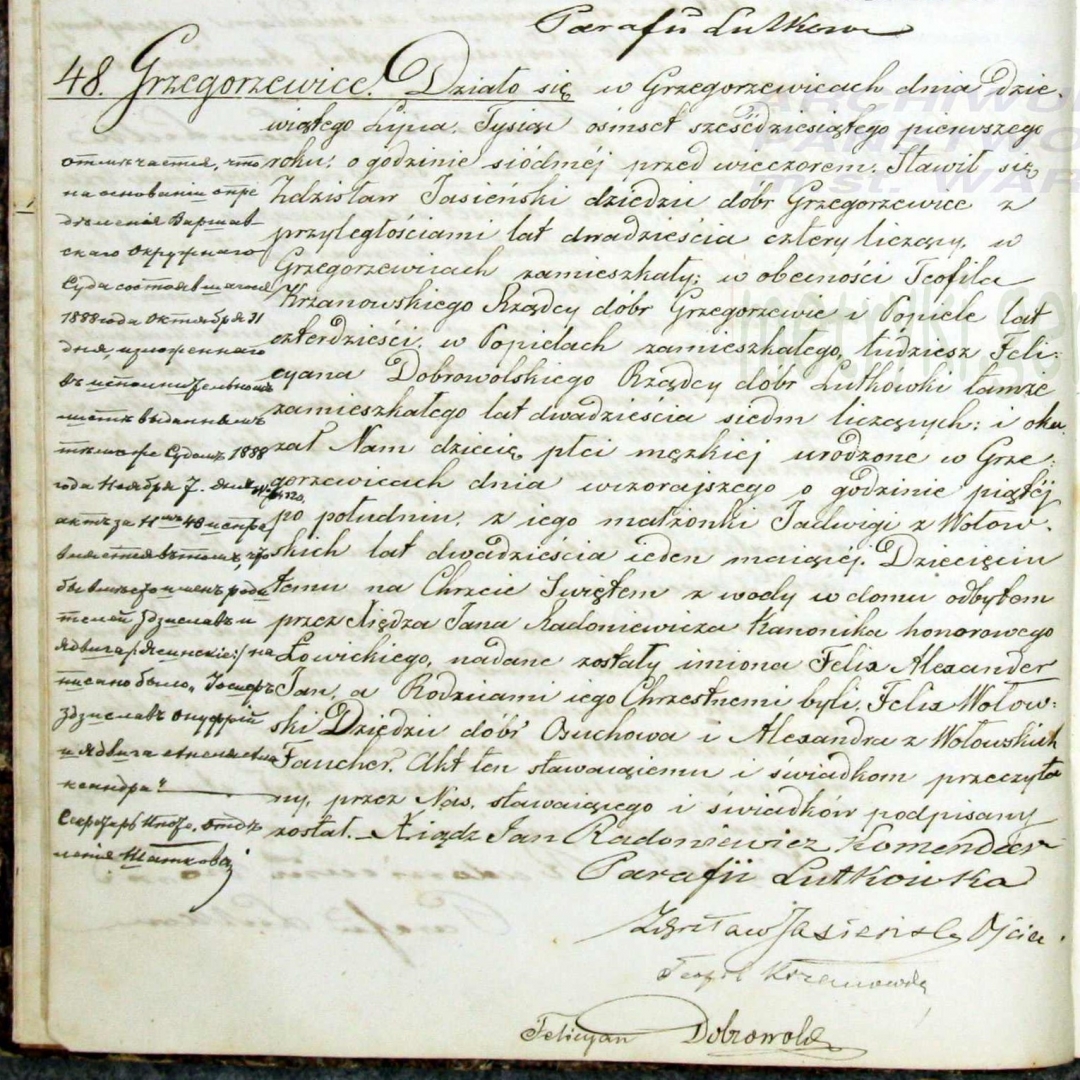 Parafii Lutkowe
48. Grzegorzewice. Działo się w Grzegorzewicach dnia dzie-
wiątego Lipca, Tysiąc ośmset sześćdziesiątego pierwszego
roku, o godzinie siódméj przed wieczorem. Stawił się
Zdzisław Jasieński dziedzic dóbr Grzegorzewice z
przyległościami lat dwadzieścia cztery liczący, w
Grzegorzewicach zamieszkały; w obecności Teofila
Krzanowskiego Rządcy dóbr Grzegorzewic i Popiele lat
czterdzieści, w Popielach zamieszkałego, tudzież Feli-
cyana Dobrowolskiego Rządcy dóbr Lutkowki tamże
zamieszkałego lat dwadzieścia siedm liczących; i oka-
zał Nam dziecię płci męzkiéj urodzone w Grze-
gorzewicach dnia wczorajszego o godzinie piątéj
po południu, z iego małżonki Jadwigi z Wołow-
skich lat dwadzieścia ieden maiącéj. Dziecięciu
temu na Chrzcie Świętem z wody w domu odbytem
przez Xiędza Jana Radoniewicza Kanonika honorowego
Łowickiego, nadane zostały imiona Felix Alexander
Jan, a Rodzicami iego Chrzestnemi byli, Felix Wołow-
ski Dziedzic dóbr Osuchowa i Alexandra z Wołowskich
Faucher. Akt ten stawaiącemu i świadkom przeczyta
ny, przez Nas, stawaiącego i świadków podpisany
został. Xiądz Jan Radoniewicz Komendarz
Parafii Lutkowka
Zdzisław Jasieński Ojciec
Teofil Krzanowski
Felicyan Dobrowolski
отмѣчается, что
на основаніи опре
дѣленія Варшав
скаго Окружнаго
Суда состоявшагося
1888 года Октября 31
дня, изложеннаго
въ исполнительномъ
листѣ выданномъ
тѣмъ же Судомъ 1888
года Ноября 7. дня
актъ за Нмъ 48 испра
вляется въ томъ, что
вмѣсто именъ роди
телей Здзиславъ и
Ядвига Ясинскіе на
писано было, Іосифъ
Здзиславъ Онуфрій
и Ядвига
ксандра"
Секретарь Ипоте. Отдѣ
ленія